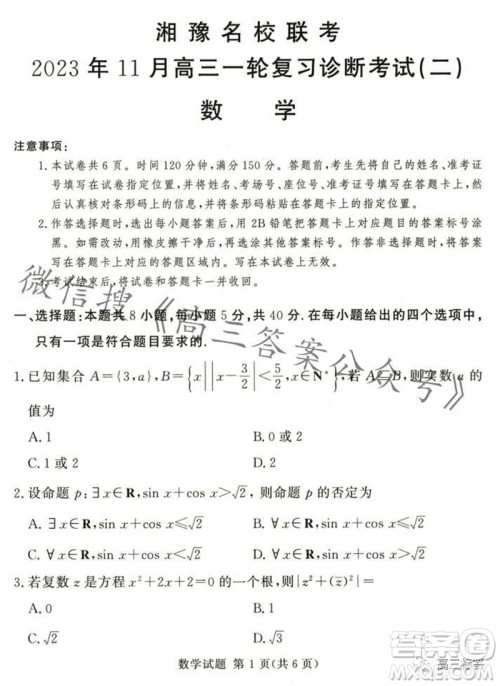 湘豫名校联考
2023年11月高三一轮复习诊断考试(二)
数 学
注意事项:
1.本试卷共6页。时间120分钟,满分150分。答题前,考生先将自己的姓名、准考证
号填写在试卷指定位置,并将姓名、考场号、座位号、准考证号填写在答题卡上,然
后认真核对条形码上的信息,并将条形码粘贴在答题卡上的指定位置。
2.作答选择题时,选出每小题答案后,用2B铅笔把答题卡上对应题目的答案标号涂
黑。如需改动,用橡皮擦干净后,再选涂其他答案标号。作答非选择题时,将答案
写在答题卡上对应的答题区域内。写在本试卷上无效。
3.考试结束后,将试卷和答题卡一并收回。
一、选择题:本题共8小题,每小题5分,共40分.在每小题给出的四个选项中,
只有一项是符合题目要求的.
1.已知集合A={3,a},B={x||x-3/2|<5/2,x∈N*},若A⊆B,则实数a的
值为
A.1 B.0或1
C.1或2 D.2
2.设命题p:∃x∈R,sin x+cos x>√2,则p的否定为
A.∃x∈R,sin x+cos x≤√2 B.∀x∈R,sin x+cos x≤√2
C.∀x∈R,sin x+cos x>√2 D.∀x∈R,sin x+cos x<√2
3.若复数z是方程x²+2x+2=0的一个根,则|z²+(z̄)²|=
A.0 B.1
C.√2 D.2
数学试题 第1页(共6页)
微信搜《高三答案公众号》
高三标答